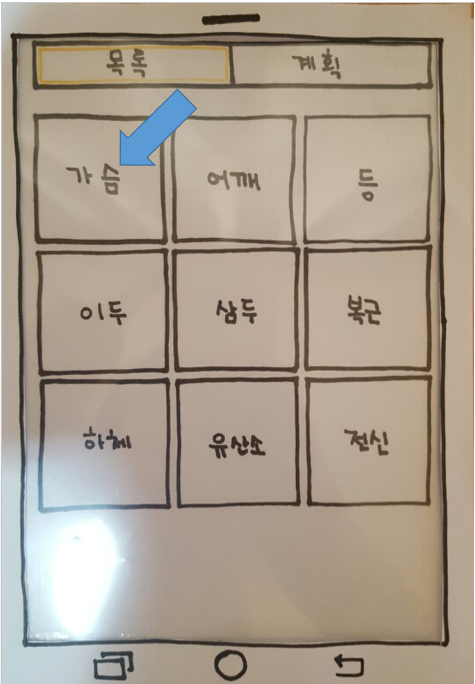 목록 계획
가슴 어깨 등
이두 삼두 복근
하체 유산소 전신